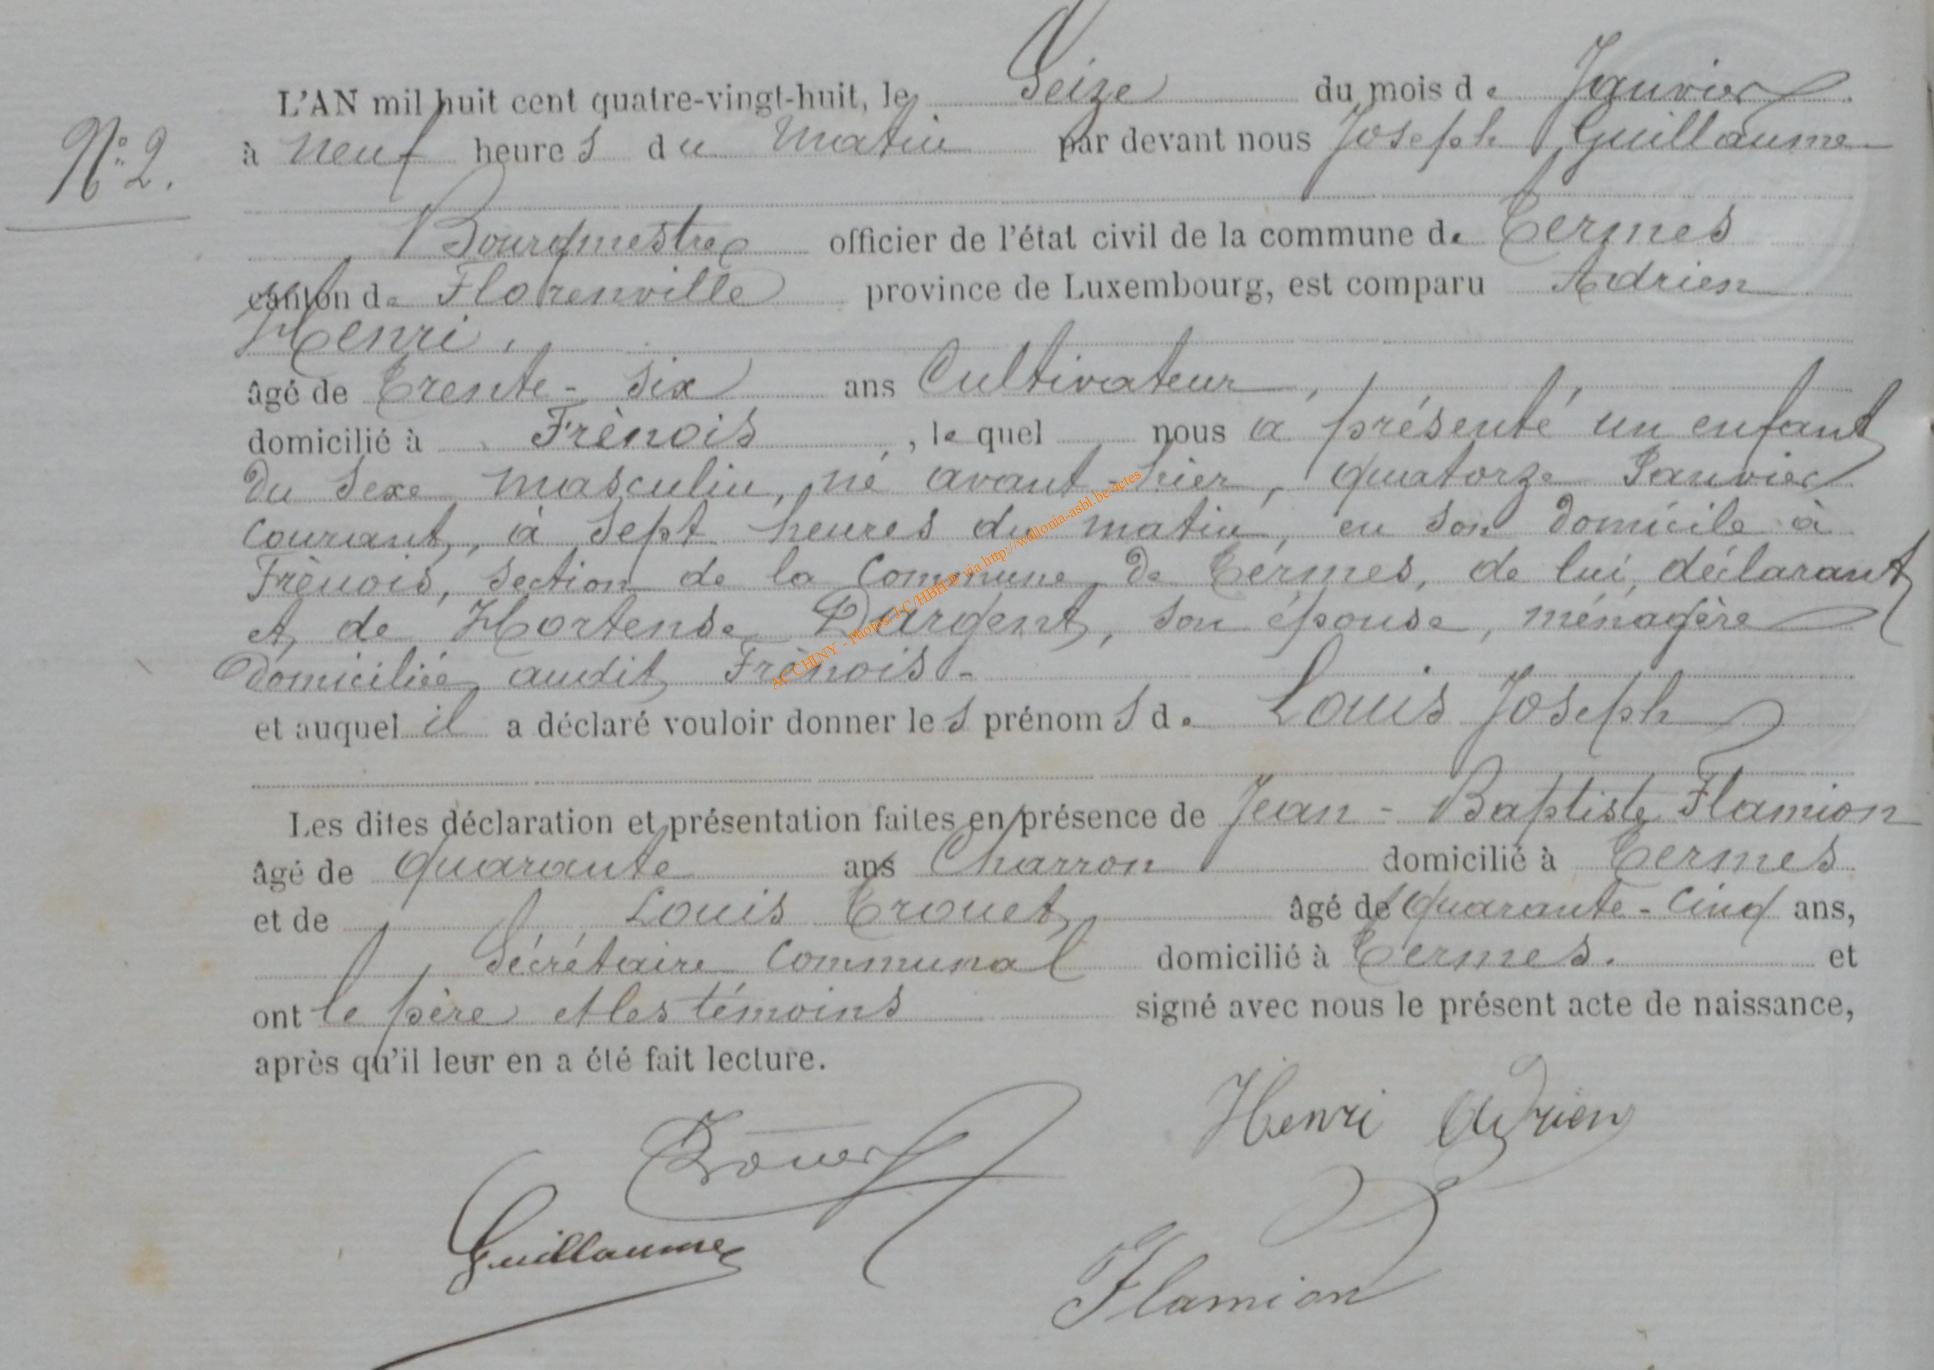 L'AN mil huit cent quatre-vingt-huit, le Seize du mois de Janvier
N° 2. à neuf heures du matin par devant nous Joseph Guillaume
Bourgmestre officier de l'état civil de la commune de Termes
canton de Florenville province de Luxembourg, est comparu Adrien
Henri,
âgé de Trente-six ans Cultivateur,
domicilié à Frènois, lequel nous a présenté un enfant
du sexe masculin, né avant-hier, quatorze Janvier
courant, à sept heures du matin, en son domicile à
Frènois, section de la Commune de Termes, de lui, déclarant
et de Hortense Dargent, son épouse, ménagère
domiciliée audit Frènois.-
et auquel il a déclaré vouloir donner les prénoms de Louis Joseph
Les dites déclaration et présentation faites en présence de Jean-Baptiste Flamion
âgé de quarante ans Charron domicilié à Termes
et de Louis Trouet âgé de quarante-cinq ans,
Sécrétaire Communal domicilié à Termes. et
ont le père et les témoins signé avec nous le présent acte de naissance,
après qu'il leur en a été fait lecture.
Henri Adrien
Trouet
Guillaume
Flamion
AC CHINY - Photos J-C HBH ar via http://wallonia-asbl.be-actes